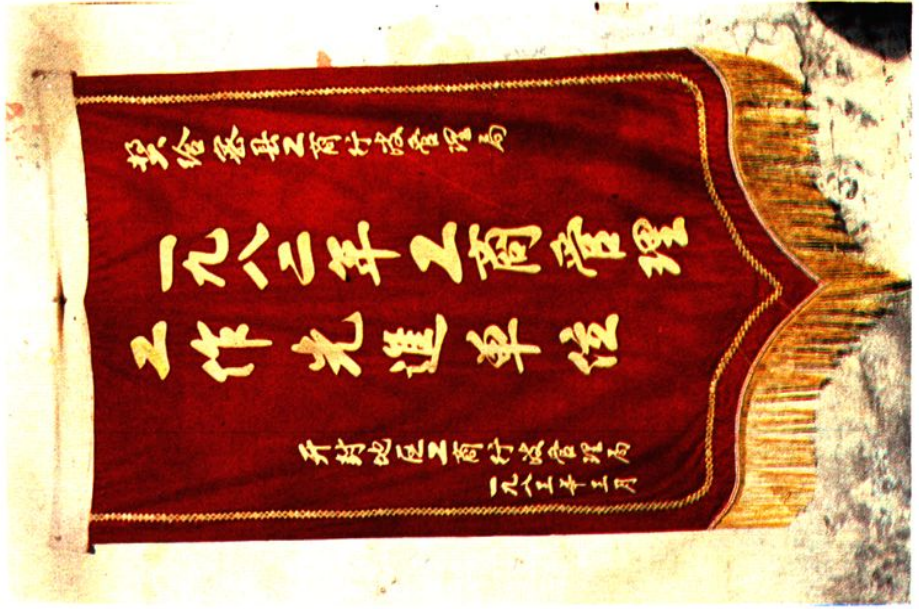 奖给密县工商行政管理局
一九八二年工商管理
工作先進单位
开封地区工商行政管理局
一九八三年三月